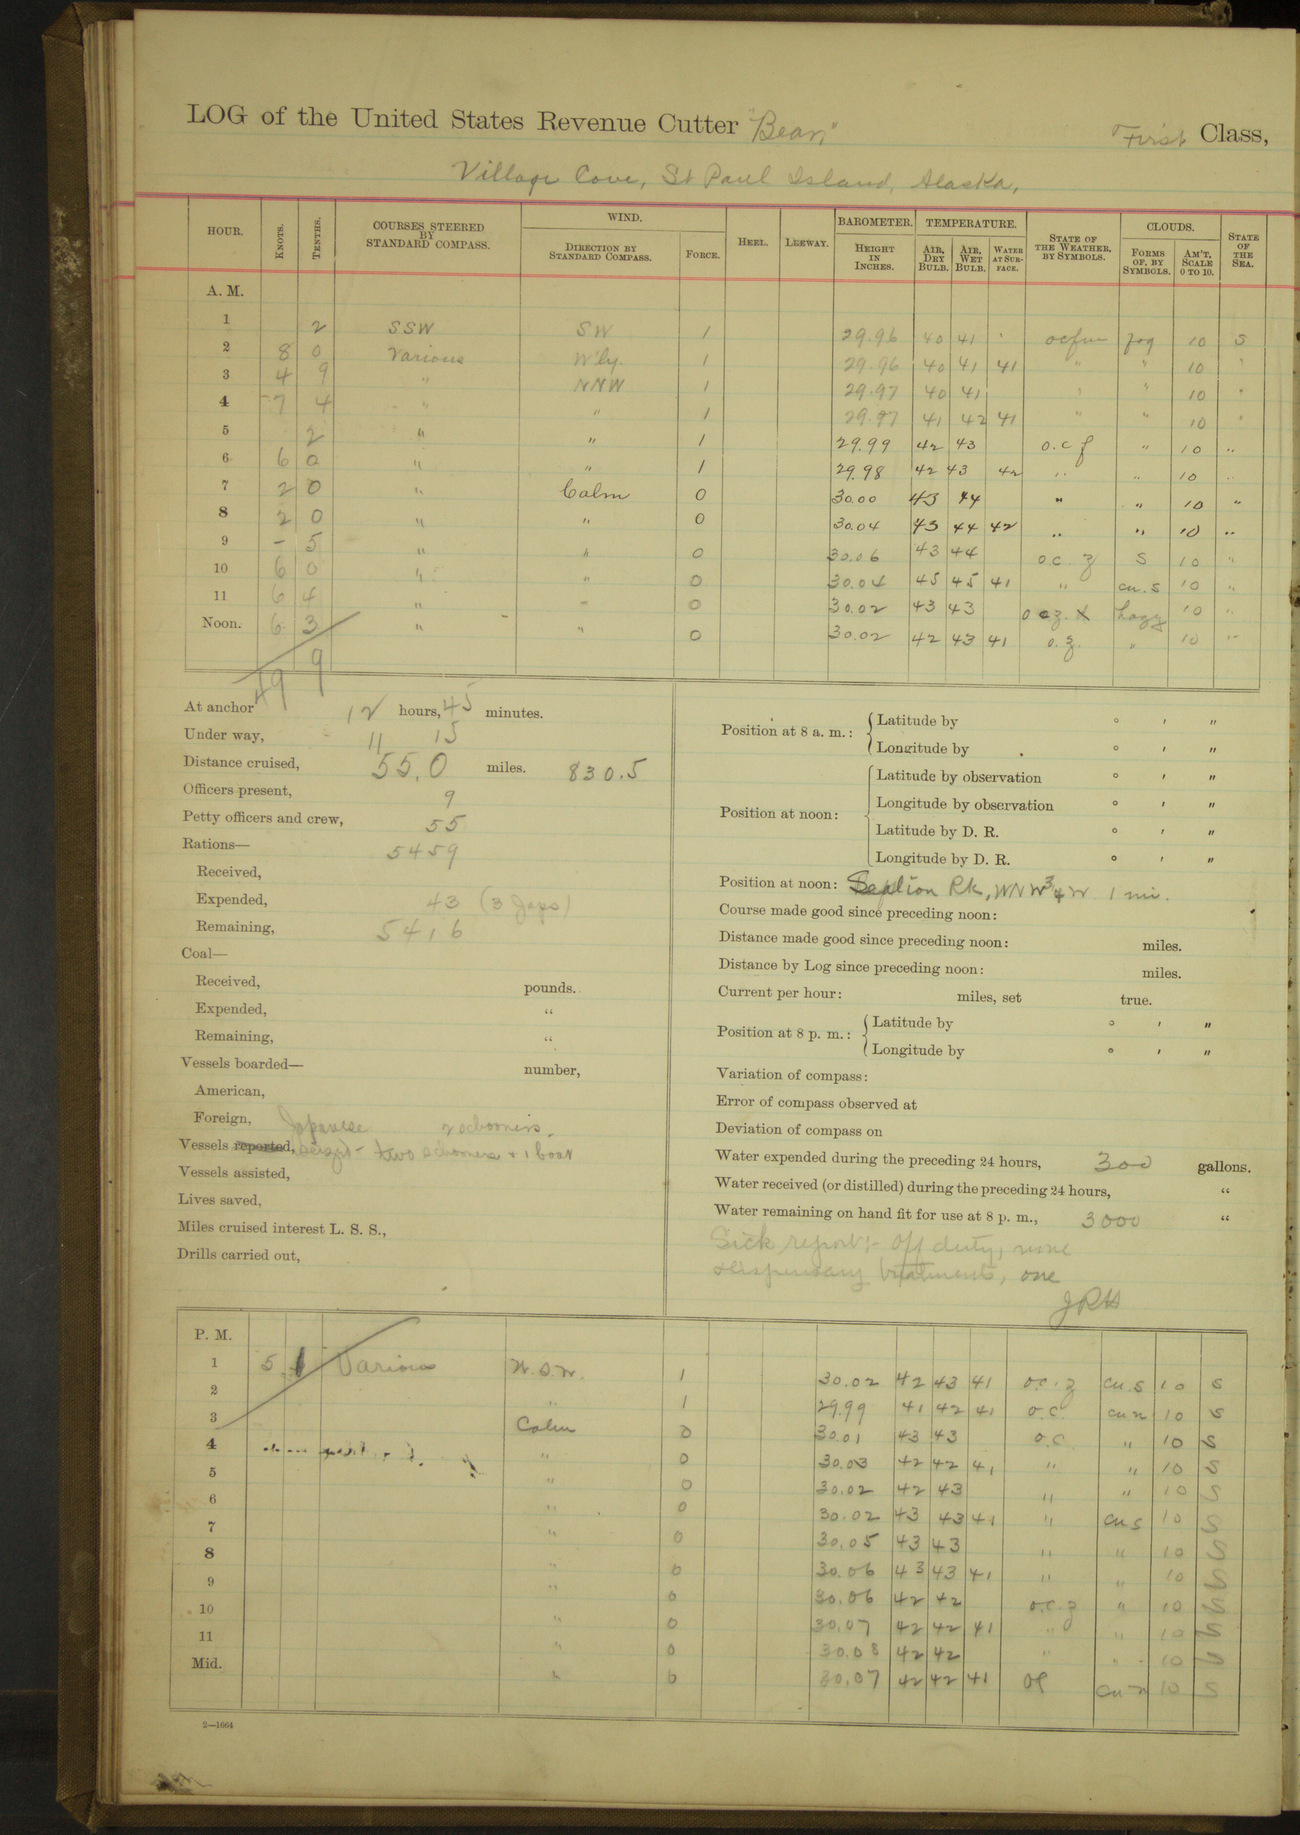 LOG of the United States Revenue Cutter "Bear," First Class,
Village Cove, St Paul Island, Alaska,
HOUR. KNOTS. TENTHS. COURSES STEERED BY STANDARD COMPASS. WIND. DIRECTION BY STANDARD COMPASS. FORCE. HEEL. LEEWAY. BAROMETER. HEIGHT IN INCHES. TEMPERATURE. AIR, DRY BULB. AIR, WET BULB. WATER AT SURFACE. STATE OF THE WEATHER, BY SYMBOLS. CLOUDS. FORMS OF, BY SYMBOLS. AM'T, SCALE 0 TO 10. STATE OF THE SEA.
A. M.
1 2 SSW SW 1 29.96 40 41 ocfm fog 10 S
2 8 0 Various W'ly. 1 29.96 40 41 41 " " 10 "
3 4 9 " NNW 1 29.97 40 41 " " 10 "
4 7 4 " " 1 29.97 41 42 41 " " 10 "
5 2 " " 1 29.99 42 43 o.c f " 10 "
6 6 0 " " 1 29.98 42 43 42 " " 10 "
7 2 0 " Calm 0 30.00 43 44 " " 10 "
8 2 0 " " 0 30.04 43 44 42 " " 10 "
9 - 5 " " 0 30.06 43 44 o.c. z S 10 "
10 6 0 " " 0 30.04 45 45 41 " cu.s 10 "
11 6 4 " " 0 30.02 43 43 o cz. hazy 10 "
Noon. 6 3 " " 0 30.02 42 43 41 o.z. " 10 "
49 9
At anchor 12 hours, 45 minutes.
Under way, 11 15
Distance cruised, 55.0 miles. 830.5
Officers present, 9
Petty officers and crew, 55
Rations— 5459
Received,
Expended, 43 (3 Japs)
Remaining, 5416
Coal—
Received, pounds.
Expended, "
Remaining, "
Vessels boarded— number,
American,
Foreign, Japanese 2 schooners.
Vessels reported, seized - two schooners + 1 boat
Vessels assisted,
Lives saved,
Miles cruised interest L. S. S.,
Drills carried out,
Position at 8 a. m.: Latitude by ° ' "
Longitude by ° ' "
Position at noon: Latitude by observation ° ' "
Longitude by observation ° ' "
Latitude by D. R. ° ' "
Longitude by D. R. ° ' "
Position at noon: Sealion Rk, WNW 3/4 W 1 mi.
Course made good since preceding noon:
Distance made good since preceding noon: miles.
Distance by Log since preceding noon: miles.
Current per hour: miles, set true.
Position at 8 p. m.: Latitude by ° ' "
Longitude by ° ' "
Variation of compass:
Error of compass observed at
Deviation of compass on
Water expended during the preceding 24 hours, 300 gallons.
Water received (or distilled) during the preceding 24 hours, "
Water remaining on hand fit for use at 8 p. m., 3000 "
Sick report:- Off duty, none
dispensary treatments, one
JRH
P. M.
1 5 1 Various W.S.W. 1 30.02 42 43 41 o.c.z cu.s 10 S
2 " 1 29.99 41 42 41 o.c. cu n 10 S
3 Calm 0 30.01 43 43 o.c. " 10 S
4 " 0 30.03 42 42 41 " " 10 S
5 " 0 30.02 42 43 " " 10 S
6 " 0 30.02 43 43 41 " cu s 10 S
7 " 0 30.05 43 43 " " 10 S
8 " 0 30.06 43 43 41 " " 10 S
9 " 0 30.06 42 42 o.c.z " 10 S
10 " 0 30.07 42 42 41 " " 10 S
11 " 0 30.08 42 42 " " 10 S
Mid. " 0 30.07 42 42 41 cu-n 10 S
2—1664